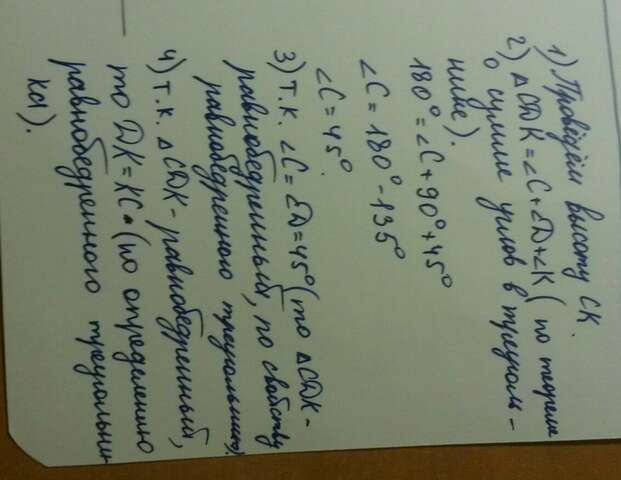 1) Проведём высоту СК.
2) ∆CDK=∠C+∠D+∠K (по теореме
о сумме углов в треуголь-
нике).
180°=∠C+90°+45°
∠C=180°-135°
∠C=45°
3) т.к. ∠C=∠D=45° (то ∆CDK-
равнобедренный, по свойству
равнобедренного треугольника).
4) т.к. ∆CDK-равнобедренный,
то DK=KC (по определению
равнобедренного треугольни
ка).